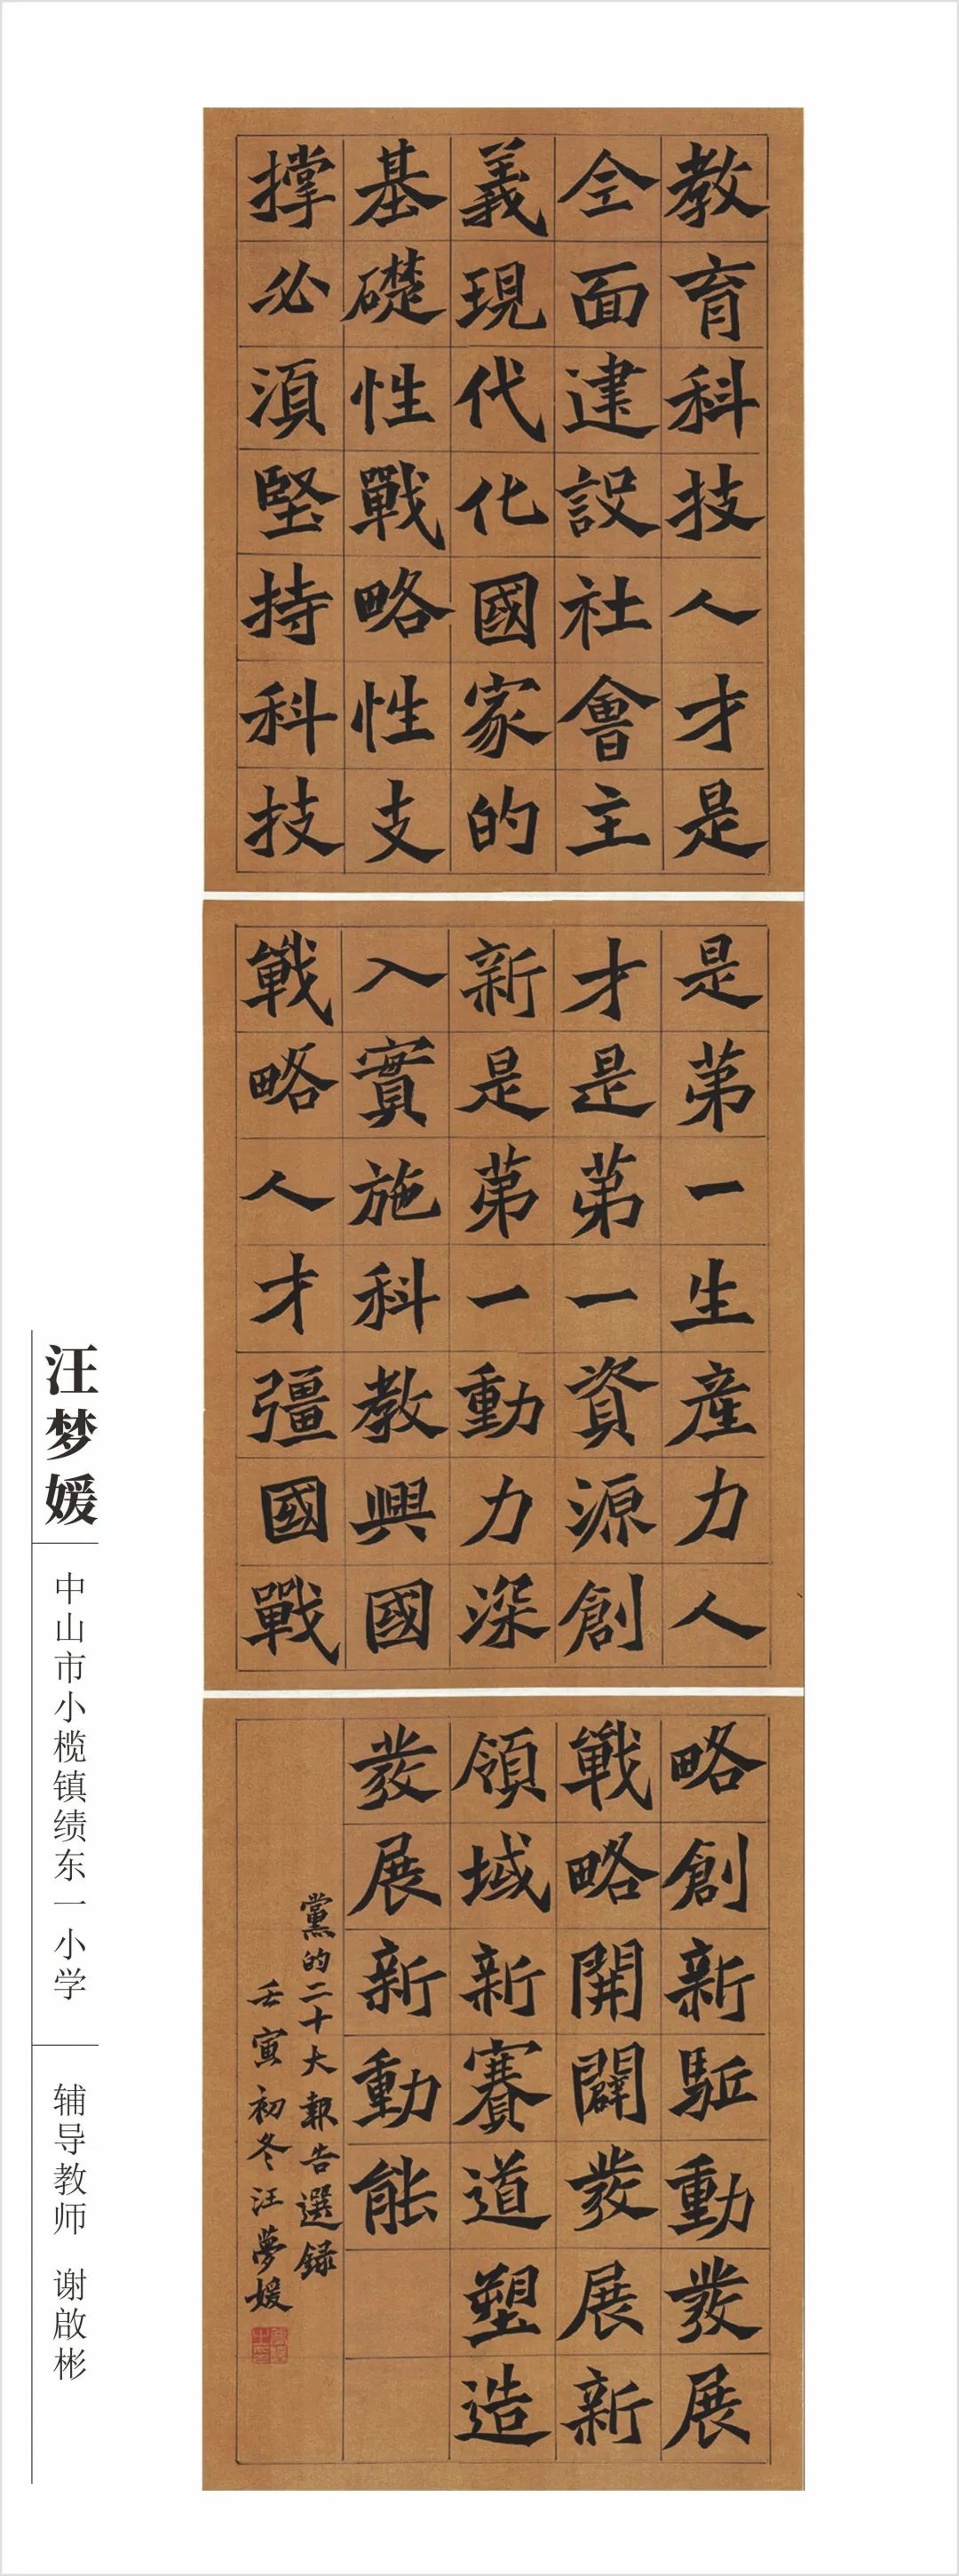 教育科技人才是
全面建設社會主
義現代化國家的
基礎性戰略性支
撑必須堅持科技
是第一生産力人
才是第一資源創
新是第一動力深
入實施科教興國
戰略人才彊國戰
略創新駈動發展
戰略開闢發展新
領域新賽道塑造
發展新動能
黨的二十大報告選録
壬寅初冬汪夢媛
汪梦媛
中山市小榄镇绩东一小学
辅导教师 谢啟彬